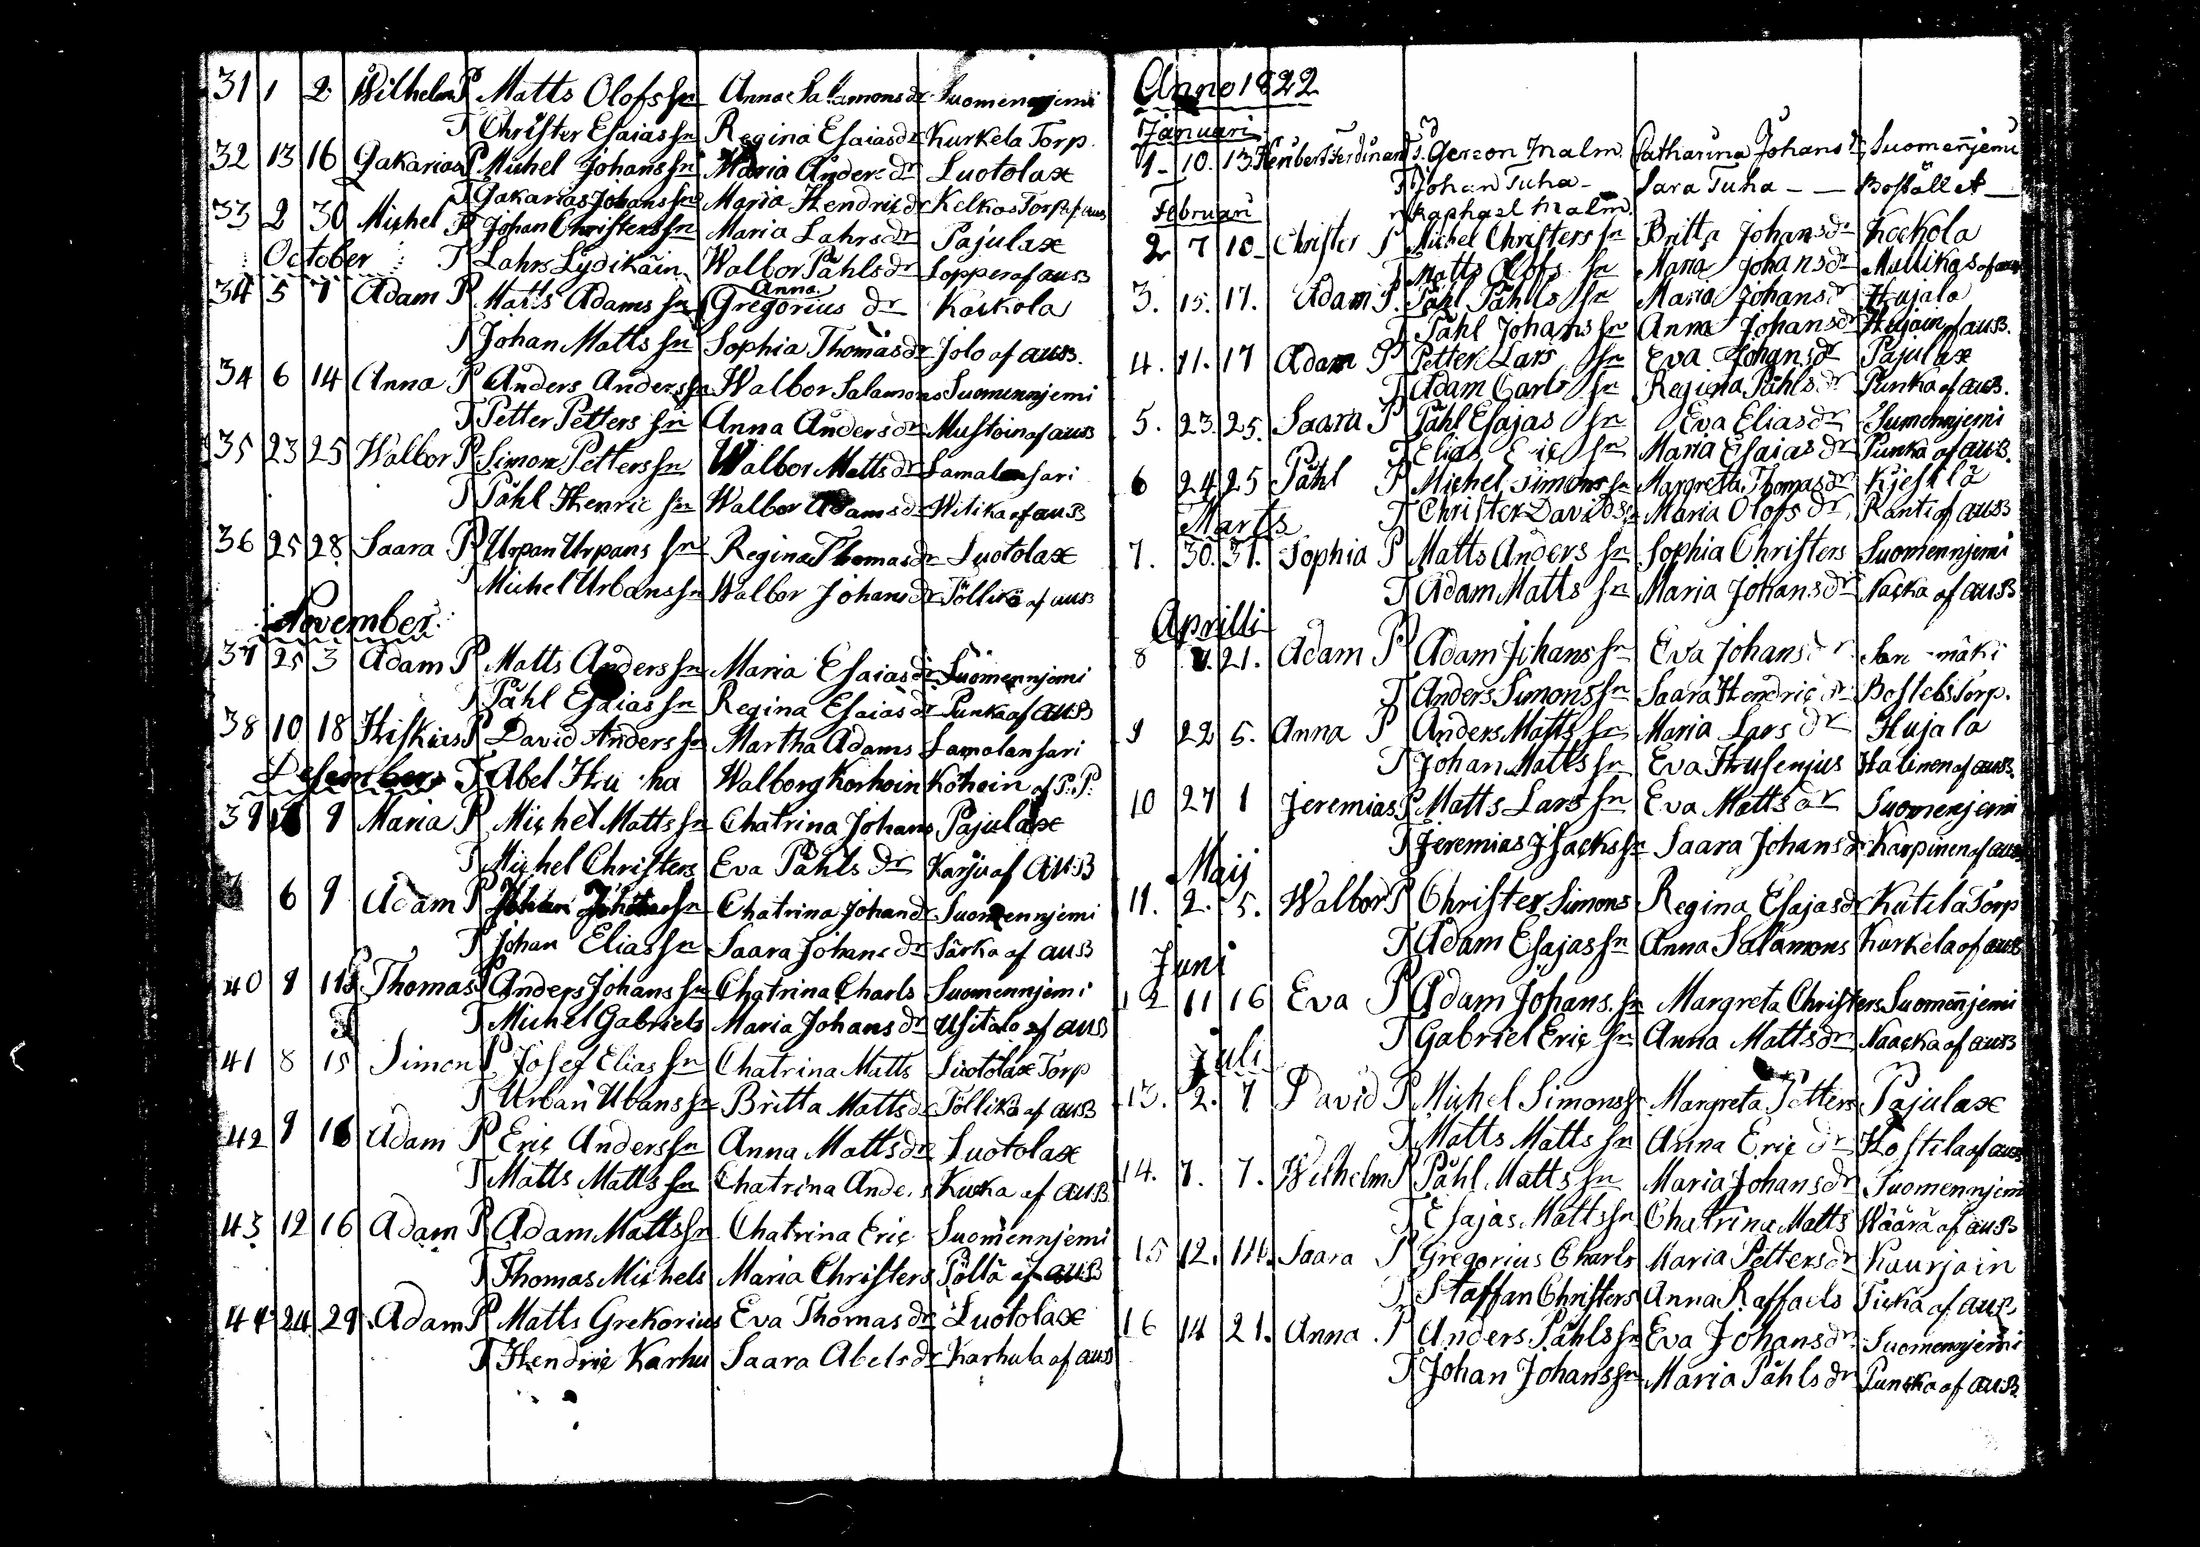 31 1 2 Wilhelm P Matts Olofs sn Anna Salamons dr Suomennjemi
T Christer Esaias sn Regina Esaias dr Kurkela Torp.
32 13 16 Gakarias P Michel Johans sn Maria Anders dr Luotolax
T Gakarias Johans sn Maria Hendric dr Kelkas Torp af aus
33 2 30 Michel P Johan Christers sn Maria Lahrs dr Pajulax
October T Lahrs Lydikäin Walbor Påhls dr Sopper af aus
34 5 7 Adam P Matts Adams sn Anna Gregorius dr Kackola
T Johan Matts sn Sophia Thomas dr Jolo af aus.
34 6 14 Anna P Anders Anders sn Walbor Salamons Suomennjemi
T Petter Petters sn Anna Anders dr Mustoin af aus
35 23 25 Walbor P Simon Petters sn Walbor Matts dr Lamalansari
T Påhl Henric sn Walbor Adams dr Witika af aus
36 25 28 Saara P Urpan Urpans sn Regina Thomas dr Luotolax
Michel Urbans sn Walbor Johans dr Töllikö af aus
November
37 25 3 Adam P Matts Anders sn Maria Esaias dr Suomennjemi
T Påhl Esaias sn Regina Esaias dr Punka af aus
38 10 18 Hiskias P David Anders sn Martha Adams Lamalansari
Desember T Abel Walborg Korhoin Kohoin af P:P:
39 9 Maria P Michel Matts sn Chatrina Johans Pajulax
T Michel Christers Eva Påhls dr Karju af aus
6 9 Adam P Chatrina Johan dr Suomennjemi
T Johan Elias sn Saara Johans dr Särka af aus
40 9 Thomas P Anders Johans sn Chatrina Charls Suomennjemi
T Michel Gabriels Maria Johans dr Usitalo af aus
41 8 15 Simon P Josef Elias sn Chatrina Matts Luotolax Torp
T Urban Ubans sn Britta Matts dr Töllikö af aus
42 9 16 Adam P Eric Anders sn Anna Matts dr Luotolax
T Matts Matts sn Chatrina Kucka af aus
43 12 16 Adam P Adam Matts sn Chatrina Eric Suomennjemi
T Thomas Michels Maria Christers Pöllä af aus
44 24 29 Adam P Matts Grekorius Eva Thomas dr Luotolax
T Hendric Karhu Saara Abels dr Karhula af aus
Anno 1822
Januari
1 10. 13 Heribert Ferdinand Gerzon Malm. Catharina Johans dr Suomennjemi
T Johan Tuha Sara Tuha Bostället
Raphael Malm.
Februari
2 7 10 Christer P Michel Christers sn Britta Johans dr Kockola
T Matts Olofs sn Maria Johans dr Mullikas af aus
3. 15. 17. Adam P. Påhl Påhls sn Maria Johans dr Hujala
T Påhl Johans sn Anna Johans dr Hujain af aus.
4. 11. 17 Adam P Petter Lars sn Eva Johans dr Pajulax
T Adam Carls sn Regina Påhls dr Punka af aus.
5. 23. 25. Saara P Påhl Esajas sn Eva Elias dr Sumennjemi
T Elias Eric sn Maria Esaias dr Punka af aus.
6 24 25 Påhl P Michel Simons sn Margreta Thomas dr Kjesilä
Marts T Christer Davids sn Maria Olofs dr Ranti af aus
7. 30. 31. Sophia P Matts Anders sn Sophia Christers Suomennjemi
T Adam Matts sn Maria Johans dr Nacka af aus
Aprilli
8 21. Adam P Adam Johans sn Eva Johans dr
T Anders Simons sn Saara Hendric dr Bostels Torp.
9 22 5. Anna P Anders Matts sn Maria Lars dr Hujala
T Johan Matts sn Eva Husenjus Halinen af aus.
10 27 1 Jeremias P Matts Lars sn Eva Matts dr Suomenjemi
T Jeremias Jsacks sn Saara Johans dr Karpinen af aus
Maij
11. 2. 5. Walbor P Christer Simons Regina Esajas dr Kutila Torp
T Adam Esajas sn Anna Salamons Kurkela af aus
Juni
12 11 16 Eva P Adam Johans. sn Margreta Christers Suomennjemi
T Gabriel Eric sn Anna Matts dr Naacka af aus
Juli
13. 2. 7 David P Michel Simons sn Margreta Petters Pajulax
T Matts Matts sn Anna Eric dr Hostila af aus
14. 7. 7. Wilhelm P Påhl Matts sn Maria Johans dr Suomennjemi
T Esajas Matts sn Chatrina Matts Wäärä af aus
15 12. 14. Saara P Gregorius Charls Maria Petters dr Kaurjain
T Staffan Christers Anna Raffaels Ticka af aus
16 14 21. Anna P Anders Påhls sn Eva Johans dr Suomennjemi
T Johan Johans sn Maria Påhls dr Puncka af aus.